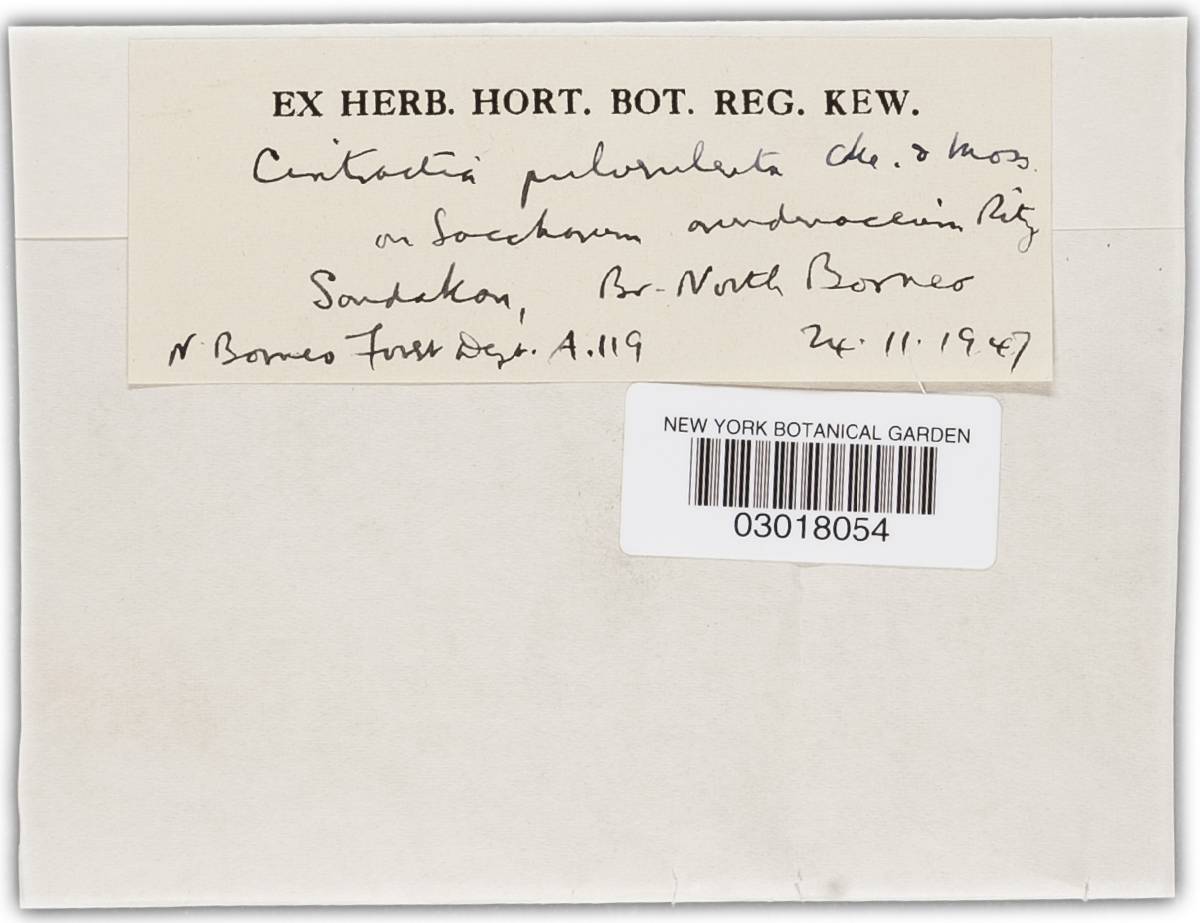 EX HERB. HORT. BOT. REG. KEW.
Cintractia pulverulenta Cke. & Mass.
on Saccharum arundinaceum Retz
Sandakan, Br. North Borneo
N. Borneo Forest Dept. A.119 24.11.1947
NEW YORK BOTANICAL GARDEN
03018054